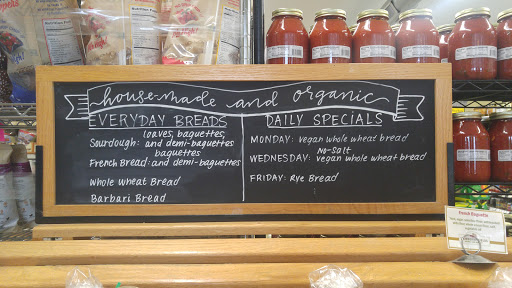 house-made and organic
EVERYDAY BREADS
loaves, baguettes,
Sourdough: and demi-baguettes
baguettes
French Bread: and demi-baguettes
Whole Wheat Bread
Barbari Bread
DAILY SPECIALS
MONDAY: vegan whole wheat bread
No-Salt
WEDNESDAY: vegan whole wheat bread
FRIDAY: Rye Bread